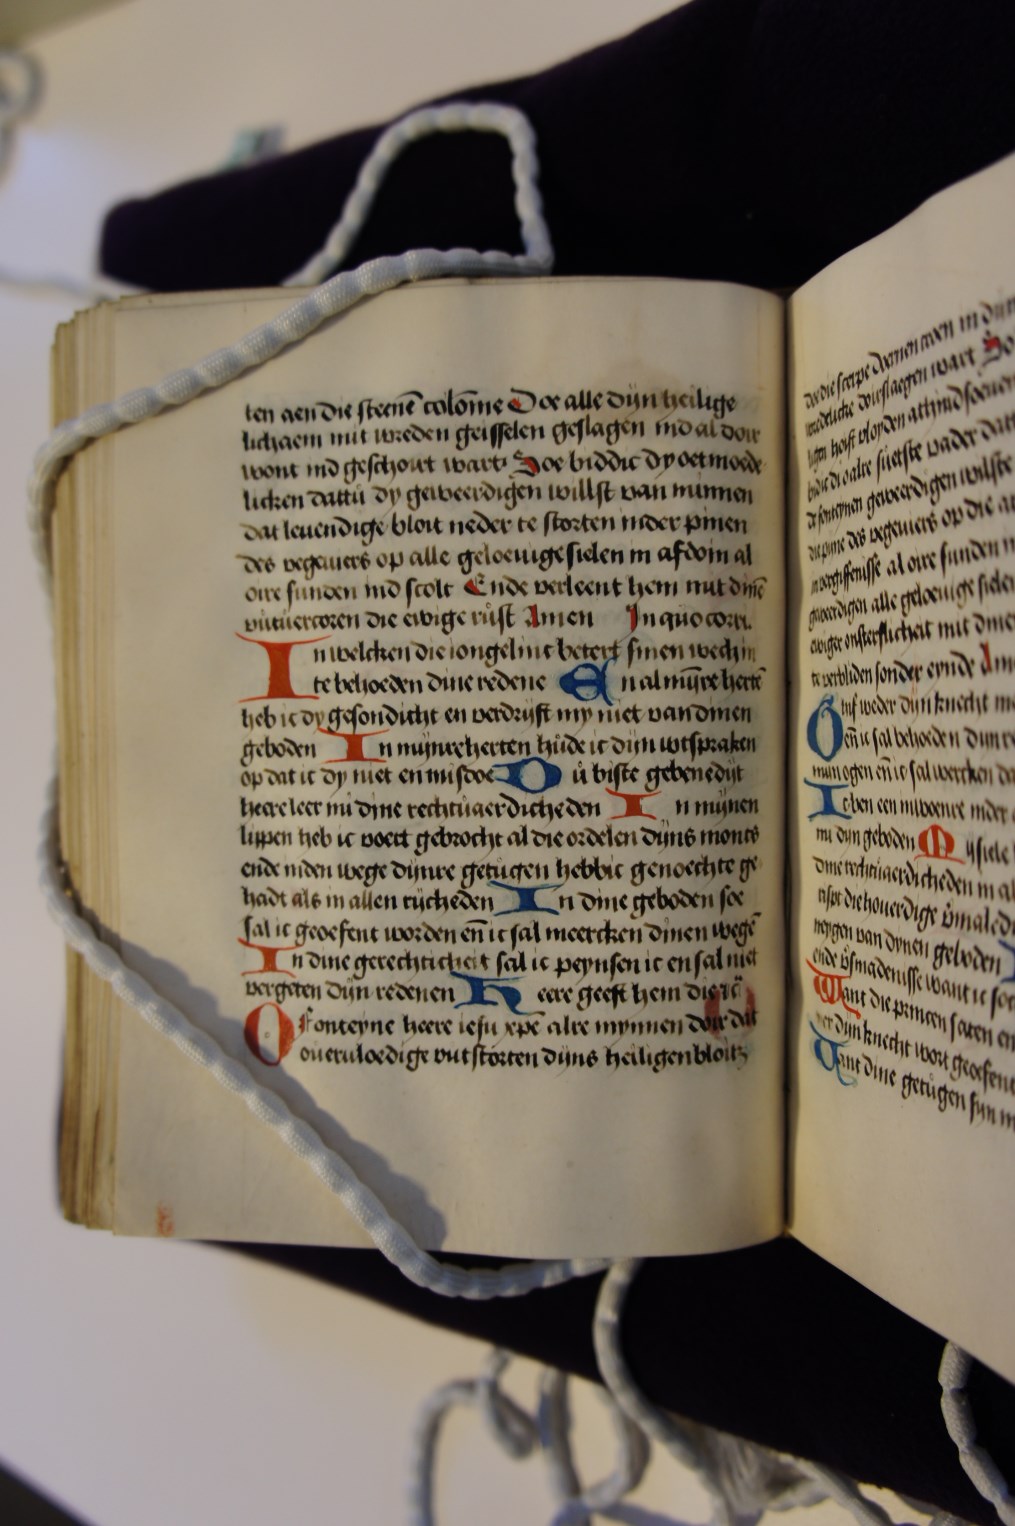 ten aen die steenē colōme Doe alle dijn heilige
lichaem mit wreden geisselen geslagen īnd al doir
wont īnd geschoirt wart Soe biddic dy oetmoede
licken dattu dy geweerdigen willst van minnen
dat leuendige bloit neder te storten īnder pinen
des vegeuiers op alle geloeuige sielen in afdoin al
oire sunden īnd scolt Ende verleent hem mit dinē
vutuercoren die ewige rust Amen In quo corri.
In welcken die iongelinc betert sinen wech in
te behoeden dine redene En al mijnre hertē
heb ic dy gesondicht en verdrijft my niet van dinen
geboden In mijnre herten hude ic dijn wtspraken
op dat ic dy niet en misdoe Du biste gebenedijt
heere leer mi dine rechtuaerdicheden In mijnen
lippen heb ic voert gebrocht al die ordelen dijns monts
ende inden wege dijnre getugen hebbic genoechte ge
hadt als in allen rijcheden In dine geboden soe
sal ic geoefent worden eñ ic sal meercken dinen wegē
In dine gerechticheit sal ic peynsen ic en sal niet
vergeten dijn redenen Heere geeft hem die
O Fonteyne heere iesu xpē alre mynnen doir dat
oueruloedige vutstorten dijns heiligen bloits
doernen croen in
wart
vader
geweerdigen
die pijne des vegeuiers op die
in vergiffenisse al oire sunden
geweerdigen alle geloeuige sielen
mit
te verbliden sonder eynde
weder dijn knecht
eñ ic sal behoeden dijn
mijn ogen eñ ic sal wercken
Ic ben een inwoenre inder
mi dijn geboden My siele
dine rechtuaerdicheden in al
die houerdige
van dynen geboden
ende want ic
Want die princen saten en
mer dijn knecht wort geoefent
Want dine getugen sijn